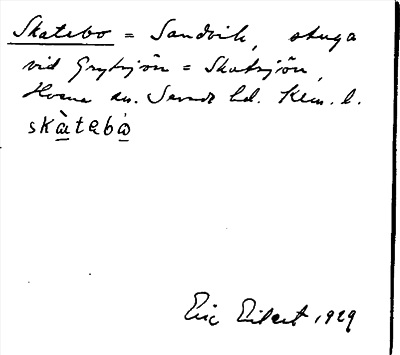 Skatebo = Sandvik, stuga
vid Grytsjön = Skatsjön,
Hvena sn. Sevede hd. Kalm. l.
skàtebó
Eric Eilert 1929